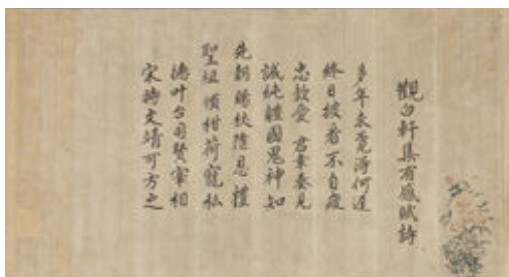 觀白軒集有感賦詩
多年求覓得何遲
終日披看不自疲
忠欵愛 君章奏見
誠純體國鬼神知
先朝錫杖隆恩禮
聖祖頒柑荷寵私
德叶台司賢宰相
宋時文靖可方之